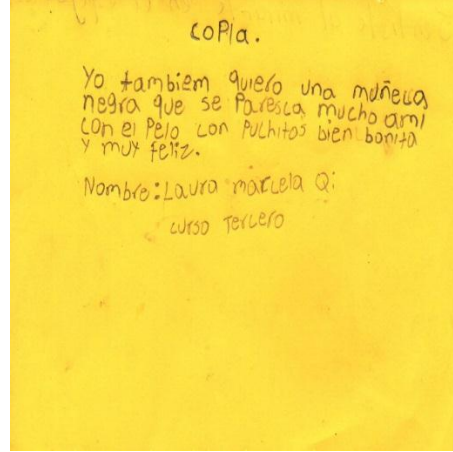 copia.
Yo tambiem quiero una muñeca
negra que se Paresca mucho ami
con el Pelo con Puchitos bien bonita
y muy feliz.
Nombre: Laura marcela Q:
curso Tercero